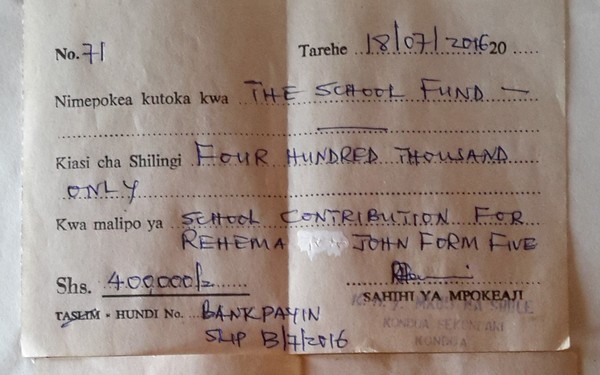 No. 71 Tarehe 18/07/2016 20
Nimepokea kutoka kwa THE SCHOOL FUND —
Kiasi cha Shilingi FOUR HUNDRED THOUSAND
ONLY
Kwa malipo ya SCHOOL CONTRIBUTION FOR
REHEMA JOHN FORM FIVE
Shs. 400,000/=
SAHIHI YA MPOKEAJI
TASLIM - HUNDI No. BANK PAYIN
SLIP 13/7/2016
MKUU WA SHULE
KONDOA SEKONDARI
KONDOA